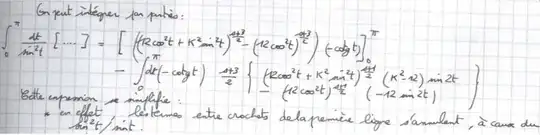 On peut intégrer par parties :
∫₀^π dt/sin²t [....] = [ ((12cos²t + K²sin²t)^((s+3)/2) - (12cos²t)^((s+3)/2)) (-cotg t) ]₀^π
- ∫₀^π dt(-cotg t) (s+3)/2 { (12cos²t + K² sin²t)^((s+1)/2) (K²-12) sin 2t
- (12cos²t)^((s+1)/2) (-12 sin 2t) }
Cette expression se simplifie :
* en effet les termes entre crochets de la première ligne s'annulent, à cause du
sin²t/sin t.